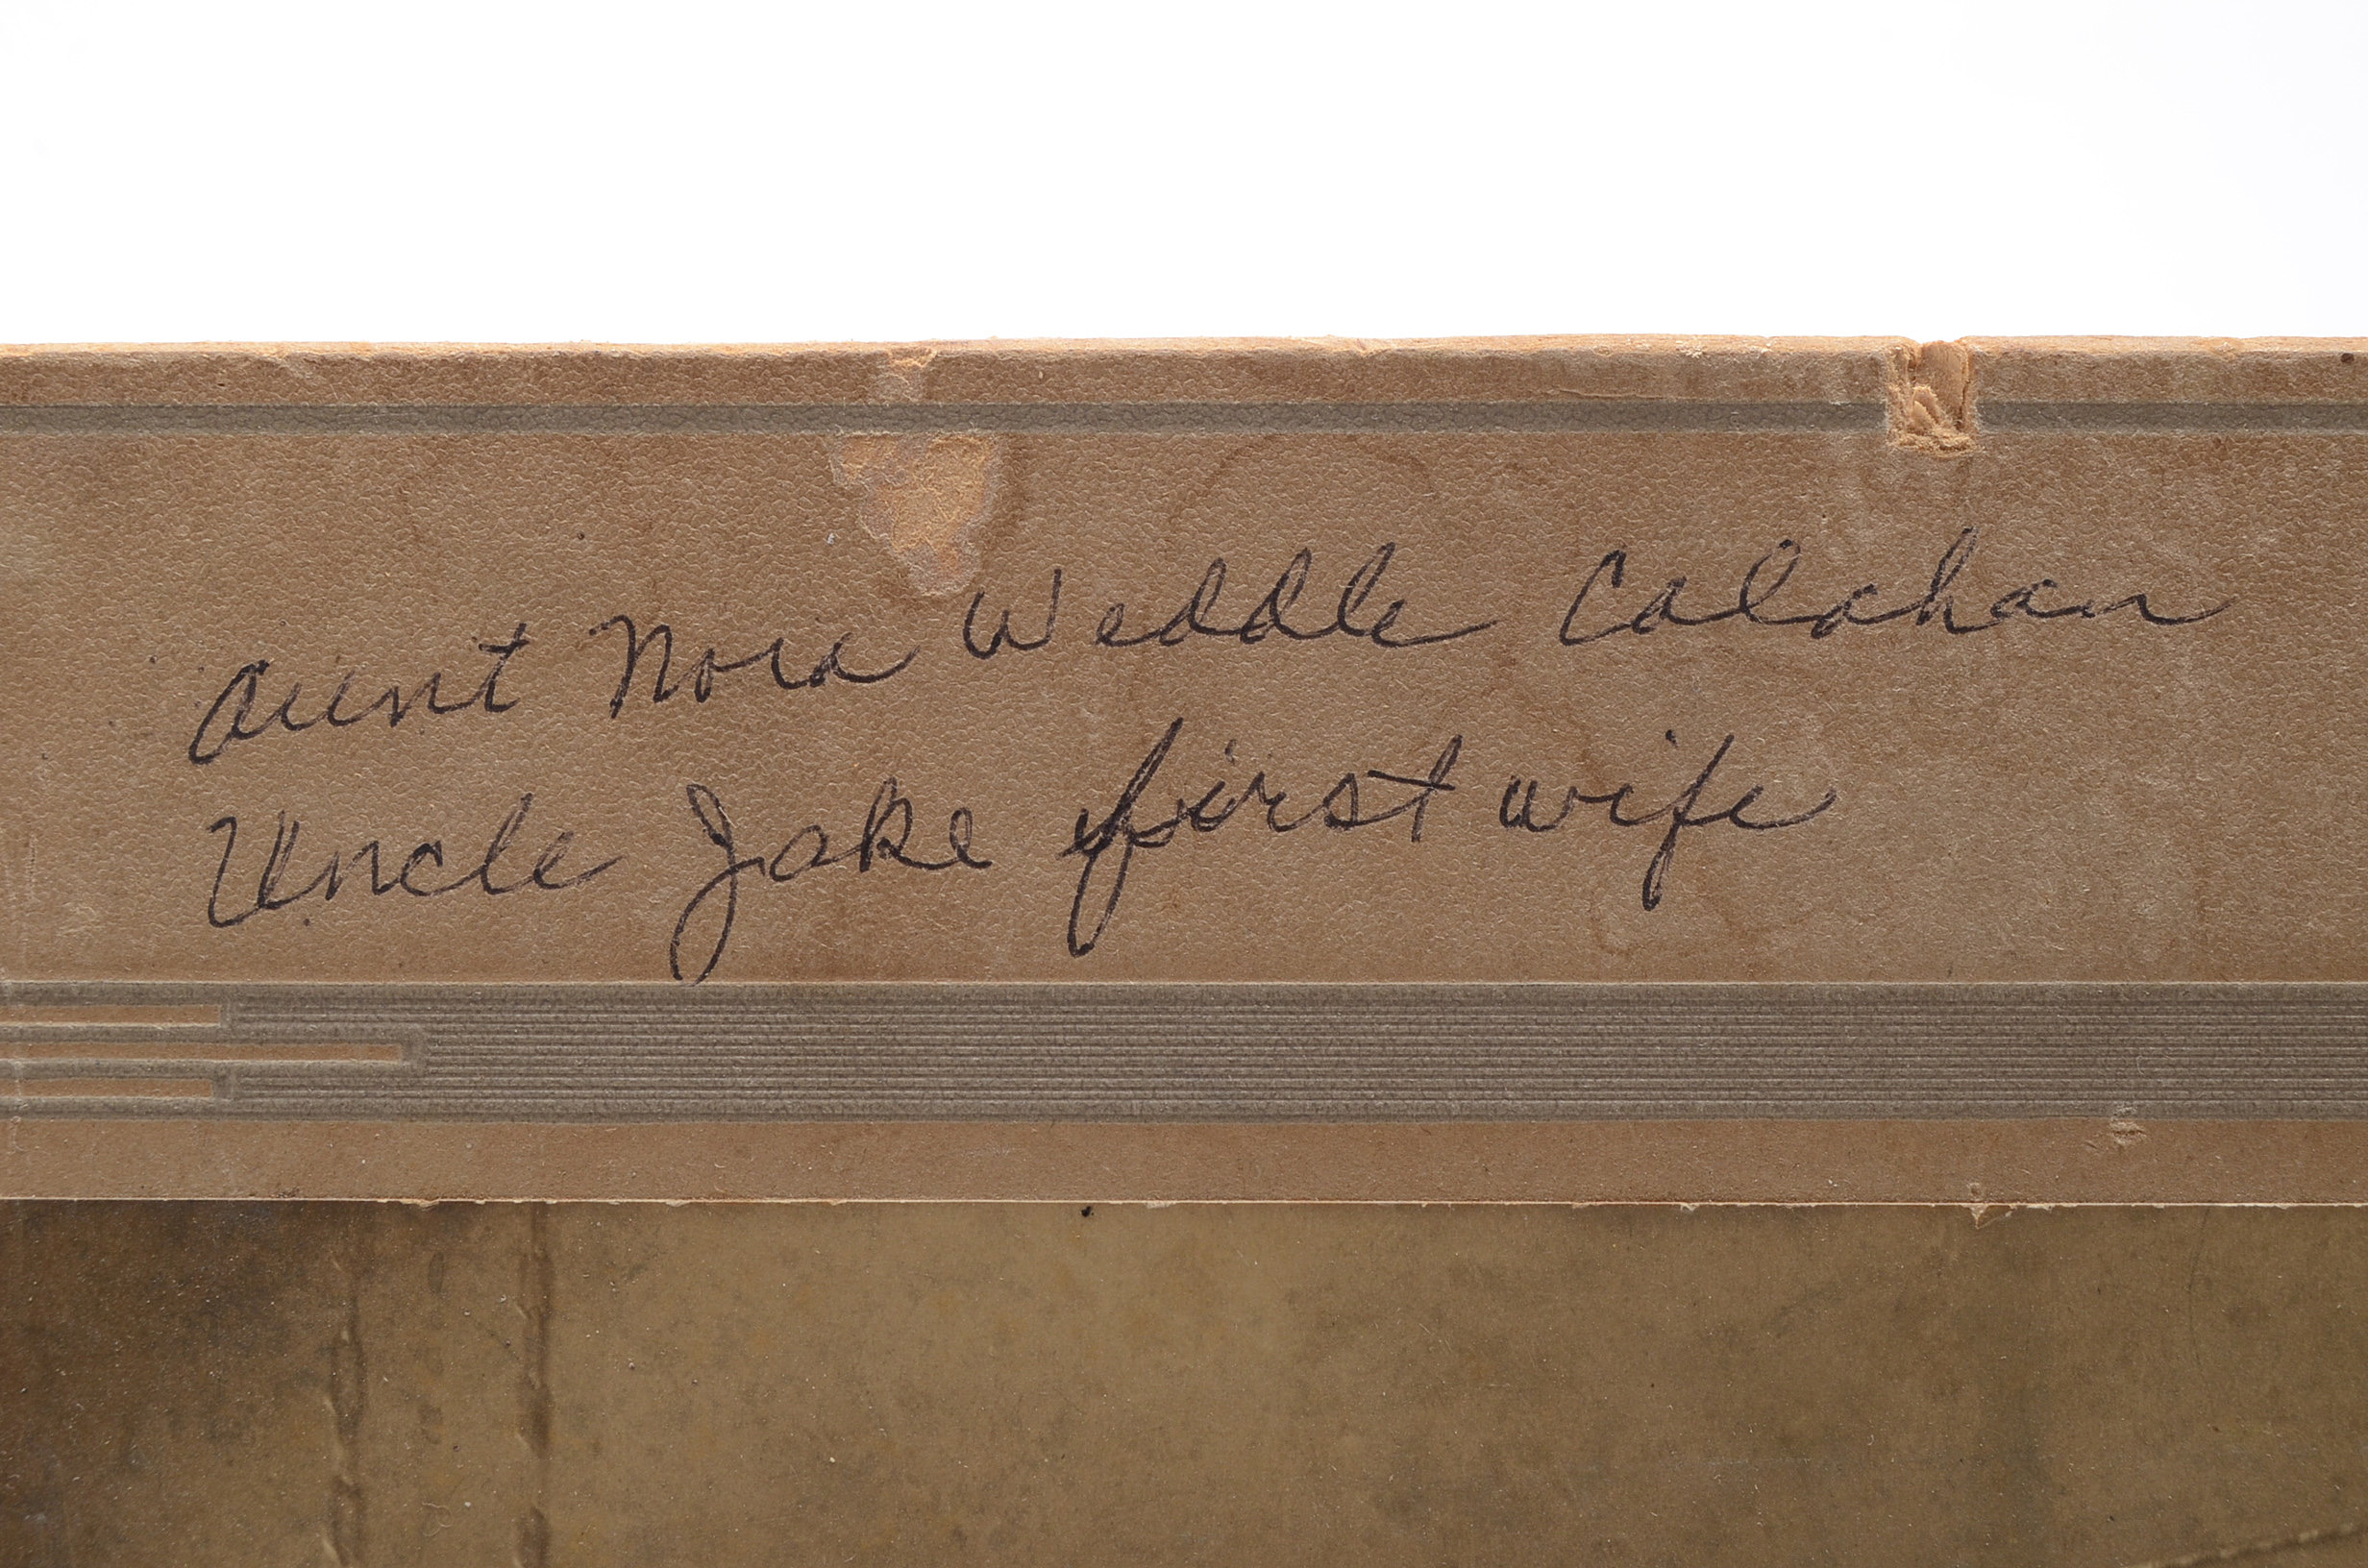 Aunt Nora Weddle Calahan
Uncle Jake first wife